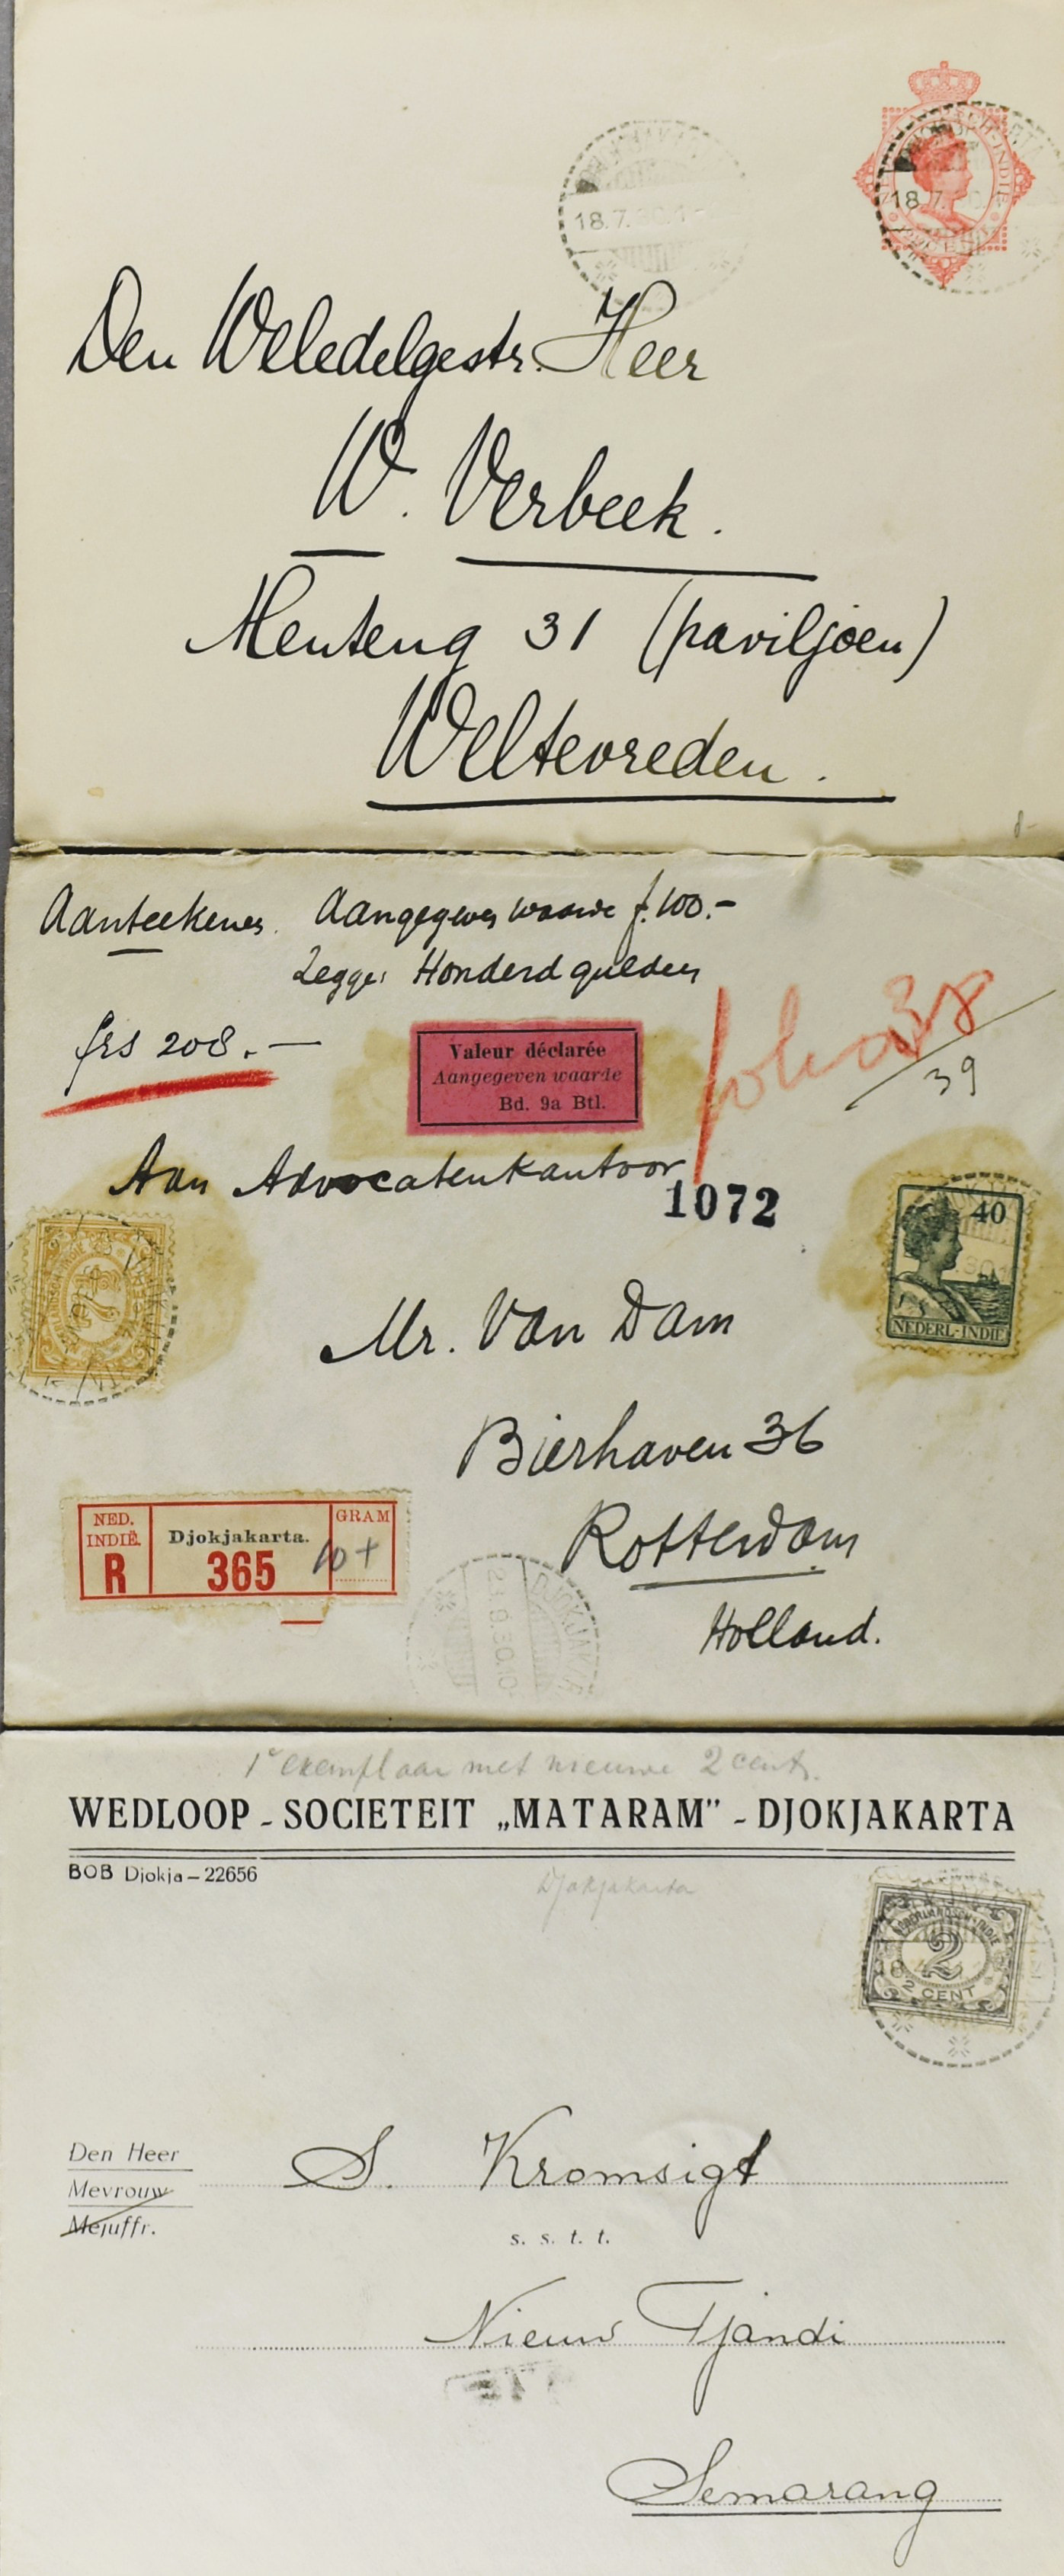 18.7.30.1-
18.7.
Den Weledelgestr. Heer
W. Verbeek.
Menteng 31 (paviljoen)
Weltevreden.
Aanteekenen. Aangegeven waarde f.100.-
Zegge: Honderd gulden
frs 208.—
Valeur déclarée
Aangegeven waarde
Bd. 9a Btl.
39
Aan Advocatenkantoor
1072
40
NEDERL-INDIE
7½
Mr. Van Dam
Bierhaven 36
Rotterdam
Holland.
NED.
INDIË.
R
Djokjakarta.
365
GRAM
10+
DJOKJAKARTA
1e exemplaar met nieuwe 2 cent.
WEDLOOP - SOCIETEIT „MATARAM” - DJOKJAKARTA
BOB Djokja – 22656
Djokjakarta
NEDERLANDSCH-INDIE
2
2 CENT
18
Den Heer
Mevrouw
Mejuffr.
S. Kromsigt
s. s. t. t.
Nieuw Tjandi
Semarang